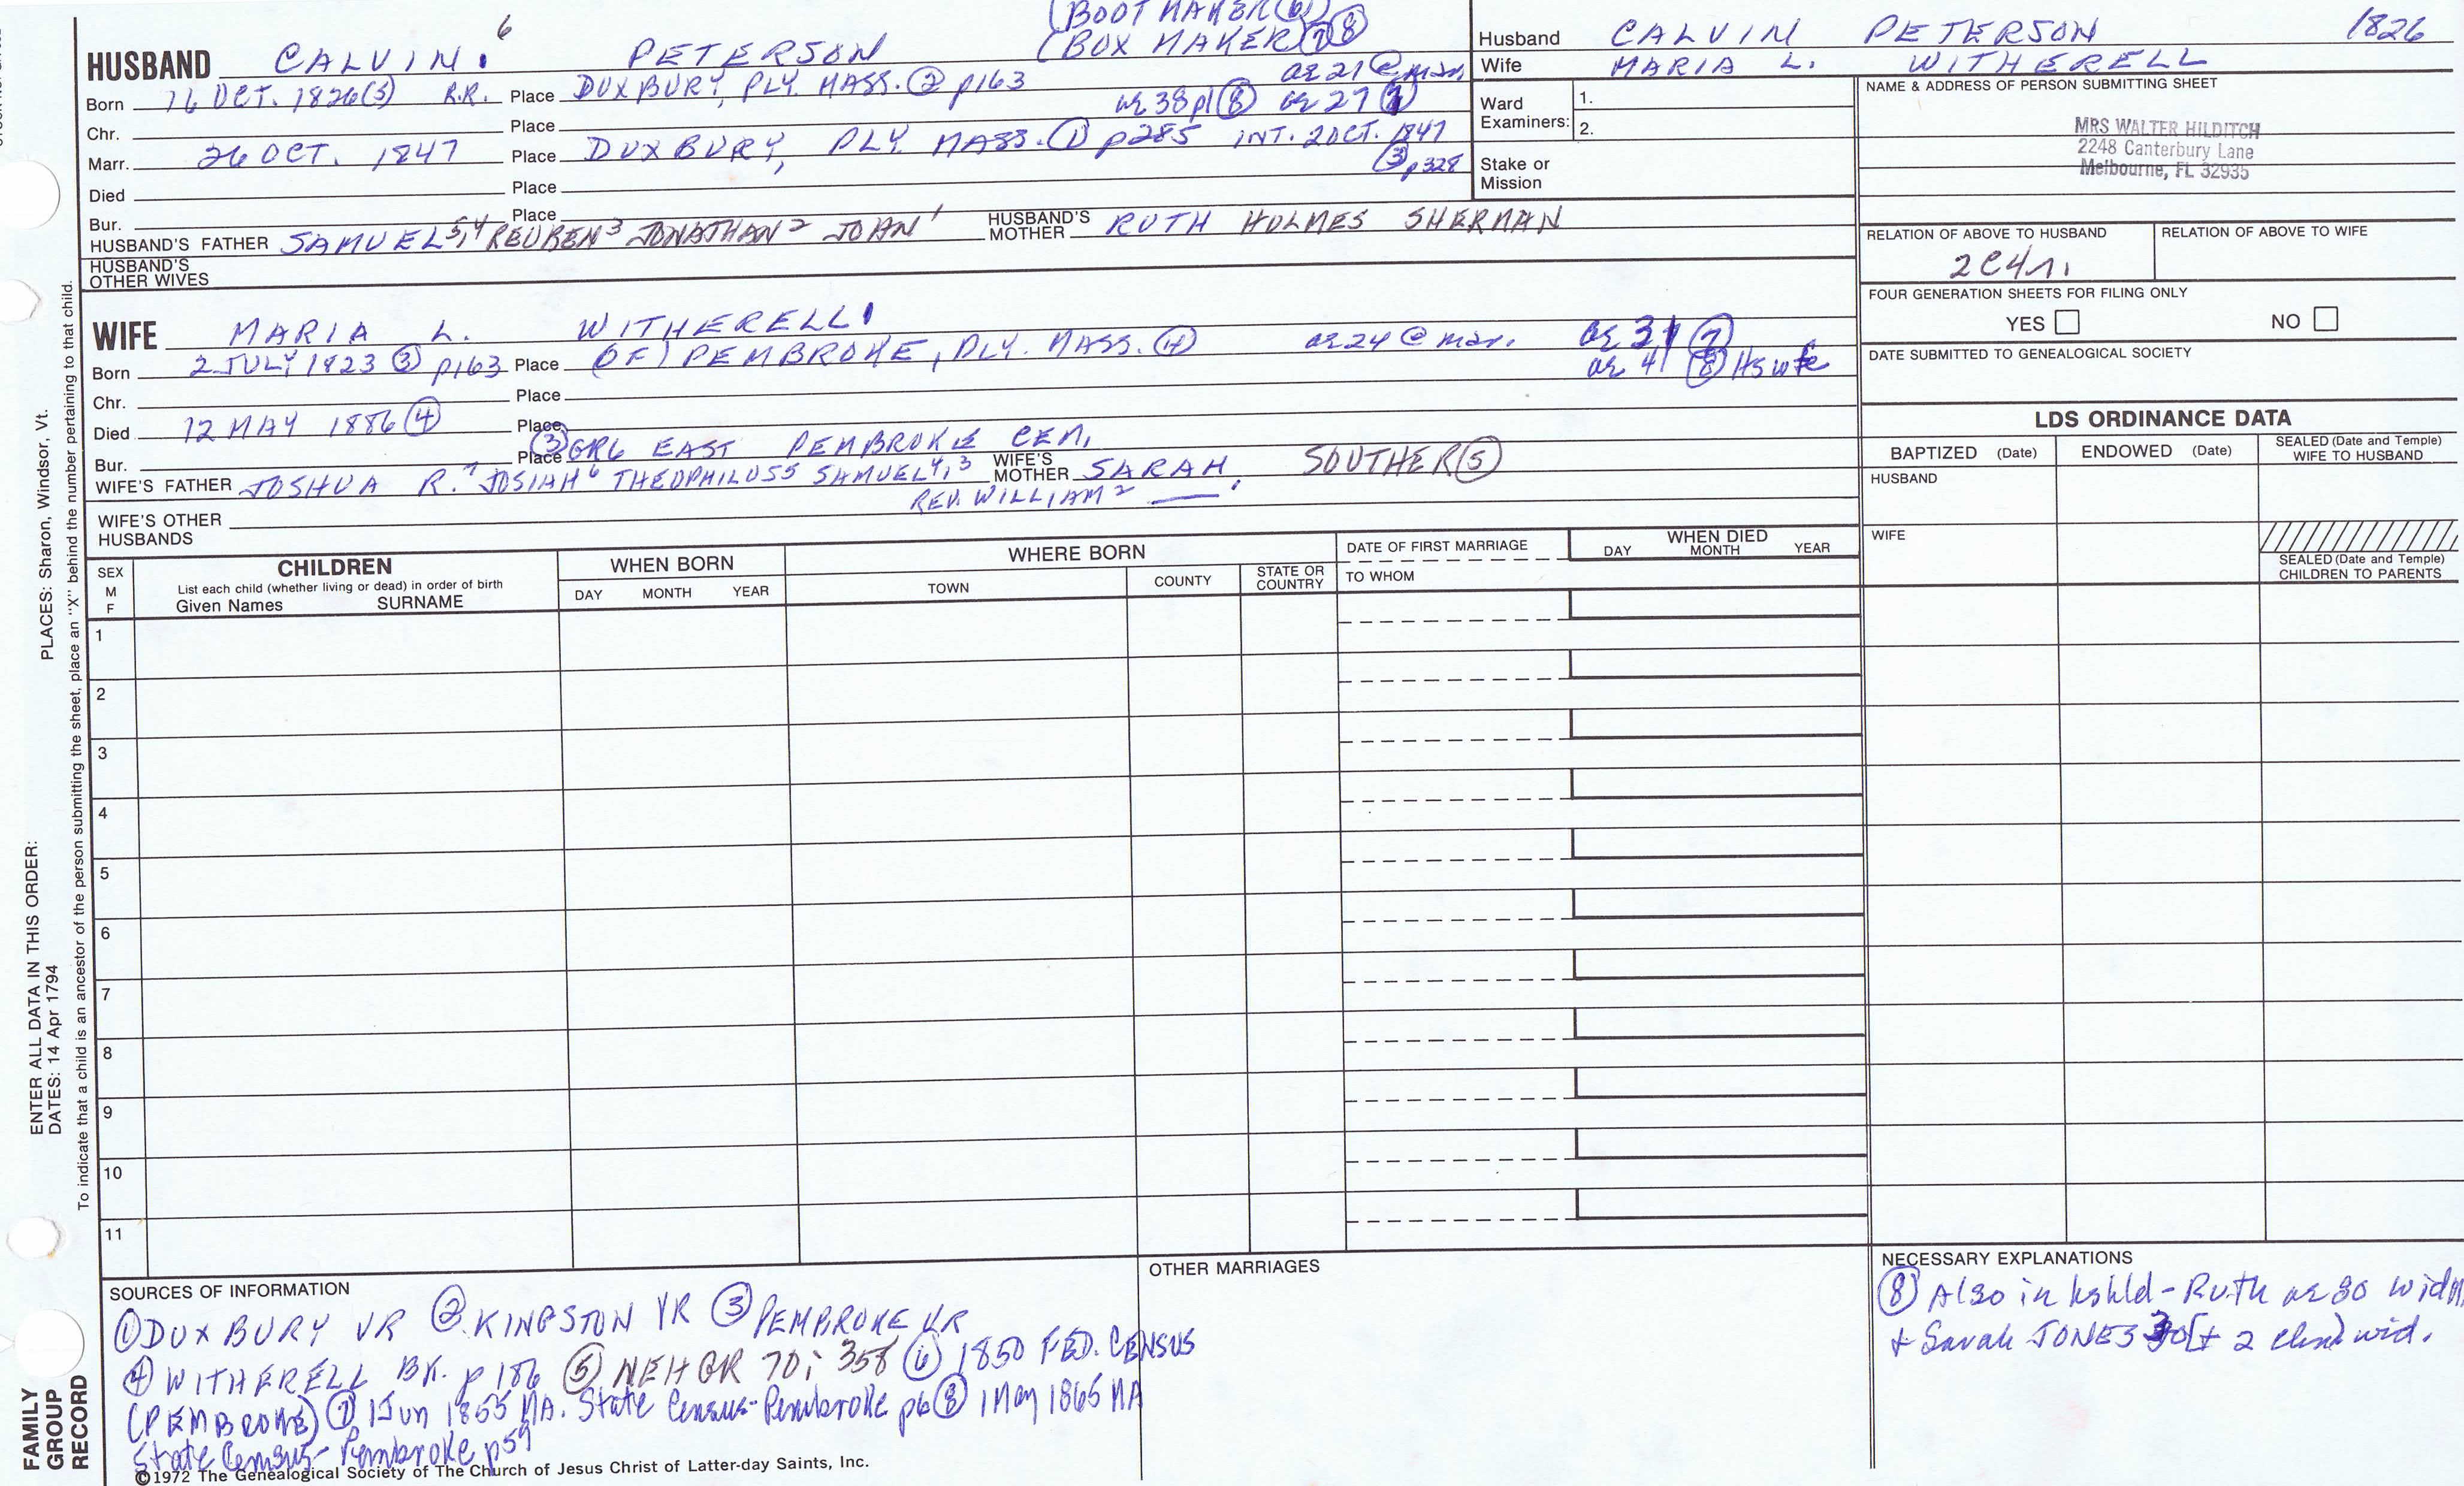 (BOOT MAKER (6)
HUSBAND CALVIN 6 PETERSON (BOX MAKER (7) (8)
Born 16 OCT. 1826(3) R.R. Place DUXBURY, PLY. MASS. (2) p163 ae 21 @ mar.
ae 38 p1 (8) ae 27 (7)
Chr. Place
Marr. 26 OCT. 1847 Place DUXBURY, PLY. MASS. (1) p285 INT. 2 OCT. 1847
(3) p328
Died Place
Bur. Place
HUSBAND'S FATHER SAMUEL 5,4 REUBEN 3 JONATHAN 2 JOHN 1 HUSBAND'S MOTHER RUTH HOLMES SHERMAN
HUSBAND'S OTHER WIVES
WIFE MARIA L. WITHERELL
Born 2 JULY 1823 (3) p163 Place (OF) PEMBROKE, PLY. MASS. (4) ae 24 @ mar. ae 31 (7)
ae 41 (8) Hswfe
Chr. Place
Died 12 MAY 1886 (4) Place
Bur. Place (3) GR6 EAST PEMBROKE CEM.
WIFE'S FATHER JOSHUA R. 7 JOSIAH 6 THEOPHILUS 5 SAMUEL 4,3 WIFE'S MOTHER SARAH SOUTHER (5)
REV. WILLIAM 2 —— 1
WIFE'S OTHER HUSBANDS
Husband CALVIN PETERSON 1826
Wife MARIA L. WITHERELL
Ward Examiners: 1.
2.
Stake or Mission
NAME & ADDRESS OF PERSON SUBMITTING SHEET
MRS WALTER HILDITCH
2248 Canterbury Lane
Melbourne, FL 32935
RELATION OF ABOVE TO HUSBAND RELATION OF ABOVE TO WIFE
2C4r.
FOUR GENERATION SHEETS FOR FILING ONLY
YES NO
DATE SUBMITTED TO GENEALOGICAL SOCIETY
LDS ORDINANCE DATA
BAPTIZED (Date) ENDOWED (Date) SEALED (Date and Temple) WIFE TO HUSBAND
HUSBAND
WIFE
SEALED (Date and Temple)
CHILDREN TO PARENTS
SEX M F
CHILDREN
List each child (whether living or dead) in order of birth
Given Names SURNAME
WHEN BORN
DAY MONTH YEAR
WHERE BORN
TOWN COUNTY STATE OR COUNTRY
DATE OF FIRST MARRIAGE
TO WHOM
WHEN DIED
DAY MONTH YEAR
1
2
3
4
5
6
7
8
9
10
11
SOURCES OF INFORMATION
(1) DUXBURY VR (2) KINGSTON VR (3) PEMBROKE VR
(4) WITHERELL BK. p 186 (5) NEHGR 70; 358 (6) 1850 FED. CENSUS
(PEMBROKE) (7) 1 Jun 1855 MA. State Census-Pembroke p6 (8) 1 May 1865 MA
State Census-Pembroke p59
©1972 The Genealogical Society of The Church of Jesus Christ of Latter-day Saints, Inc.
OTHER MARRIAGES
NECESSARY EXPLANATIONS
(8) Also in hshld - Ruth ae 80 wid
+ Sarah JONES 30 [+ 2 chn] wid.
ENTER ALL DATA IN THIS ORDER:
DATES: 14 Apr 1794
PLACES: Sharon, Windsor, Vt.
To indicate that a child is an ancestor of the person submitting the sheet, place an "X" behind the number pertaining to that child.
FAMILY
GROUP
RECORD